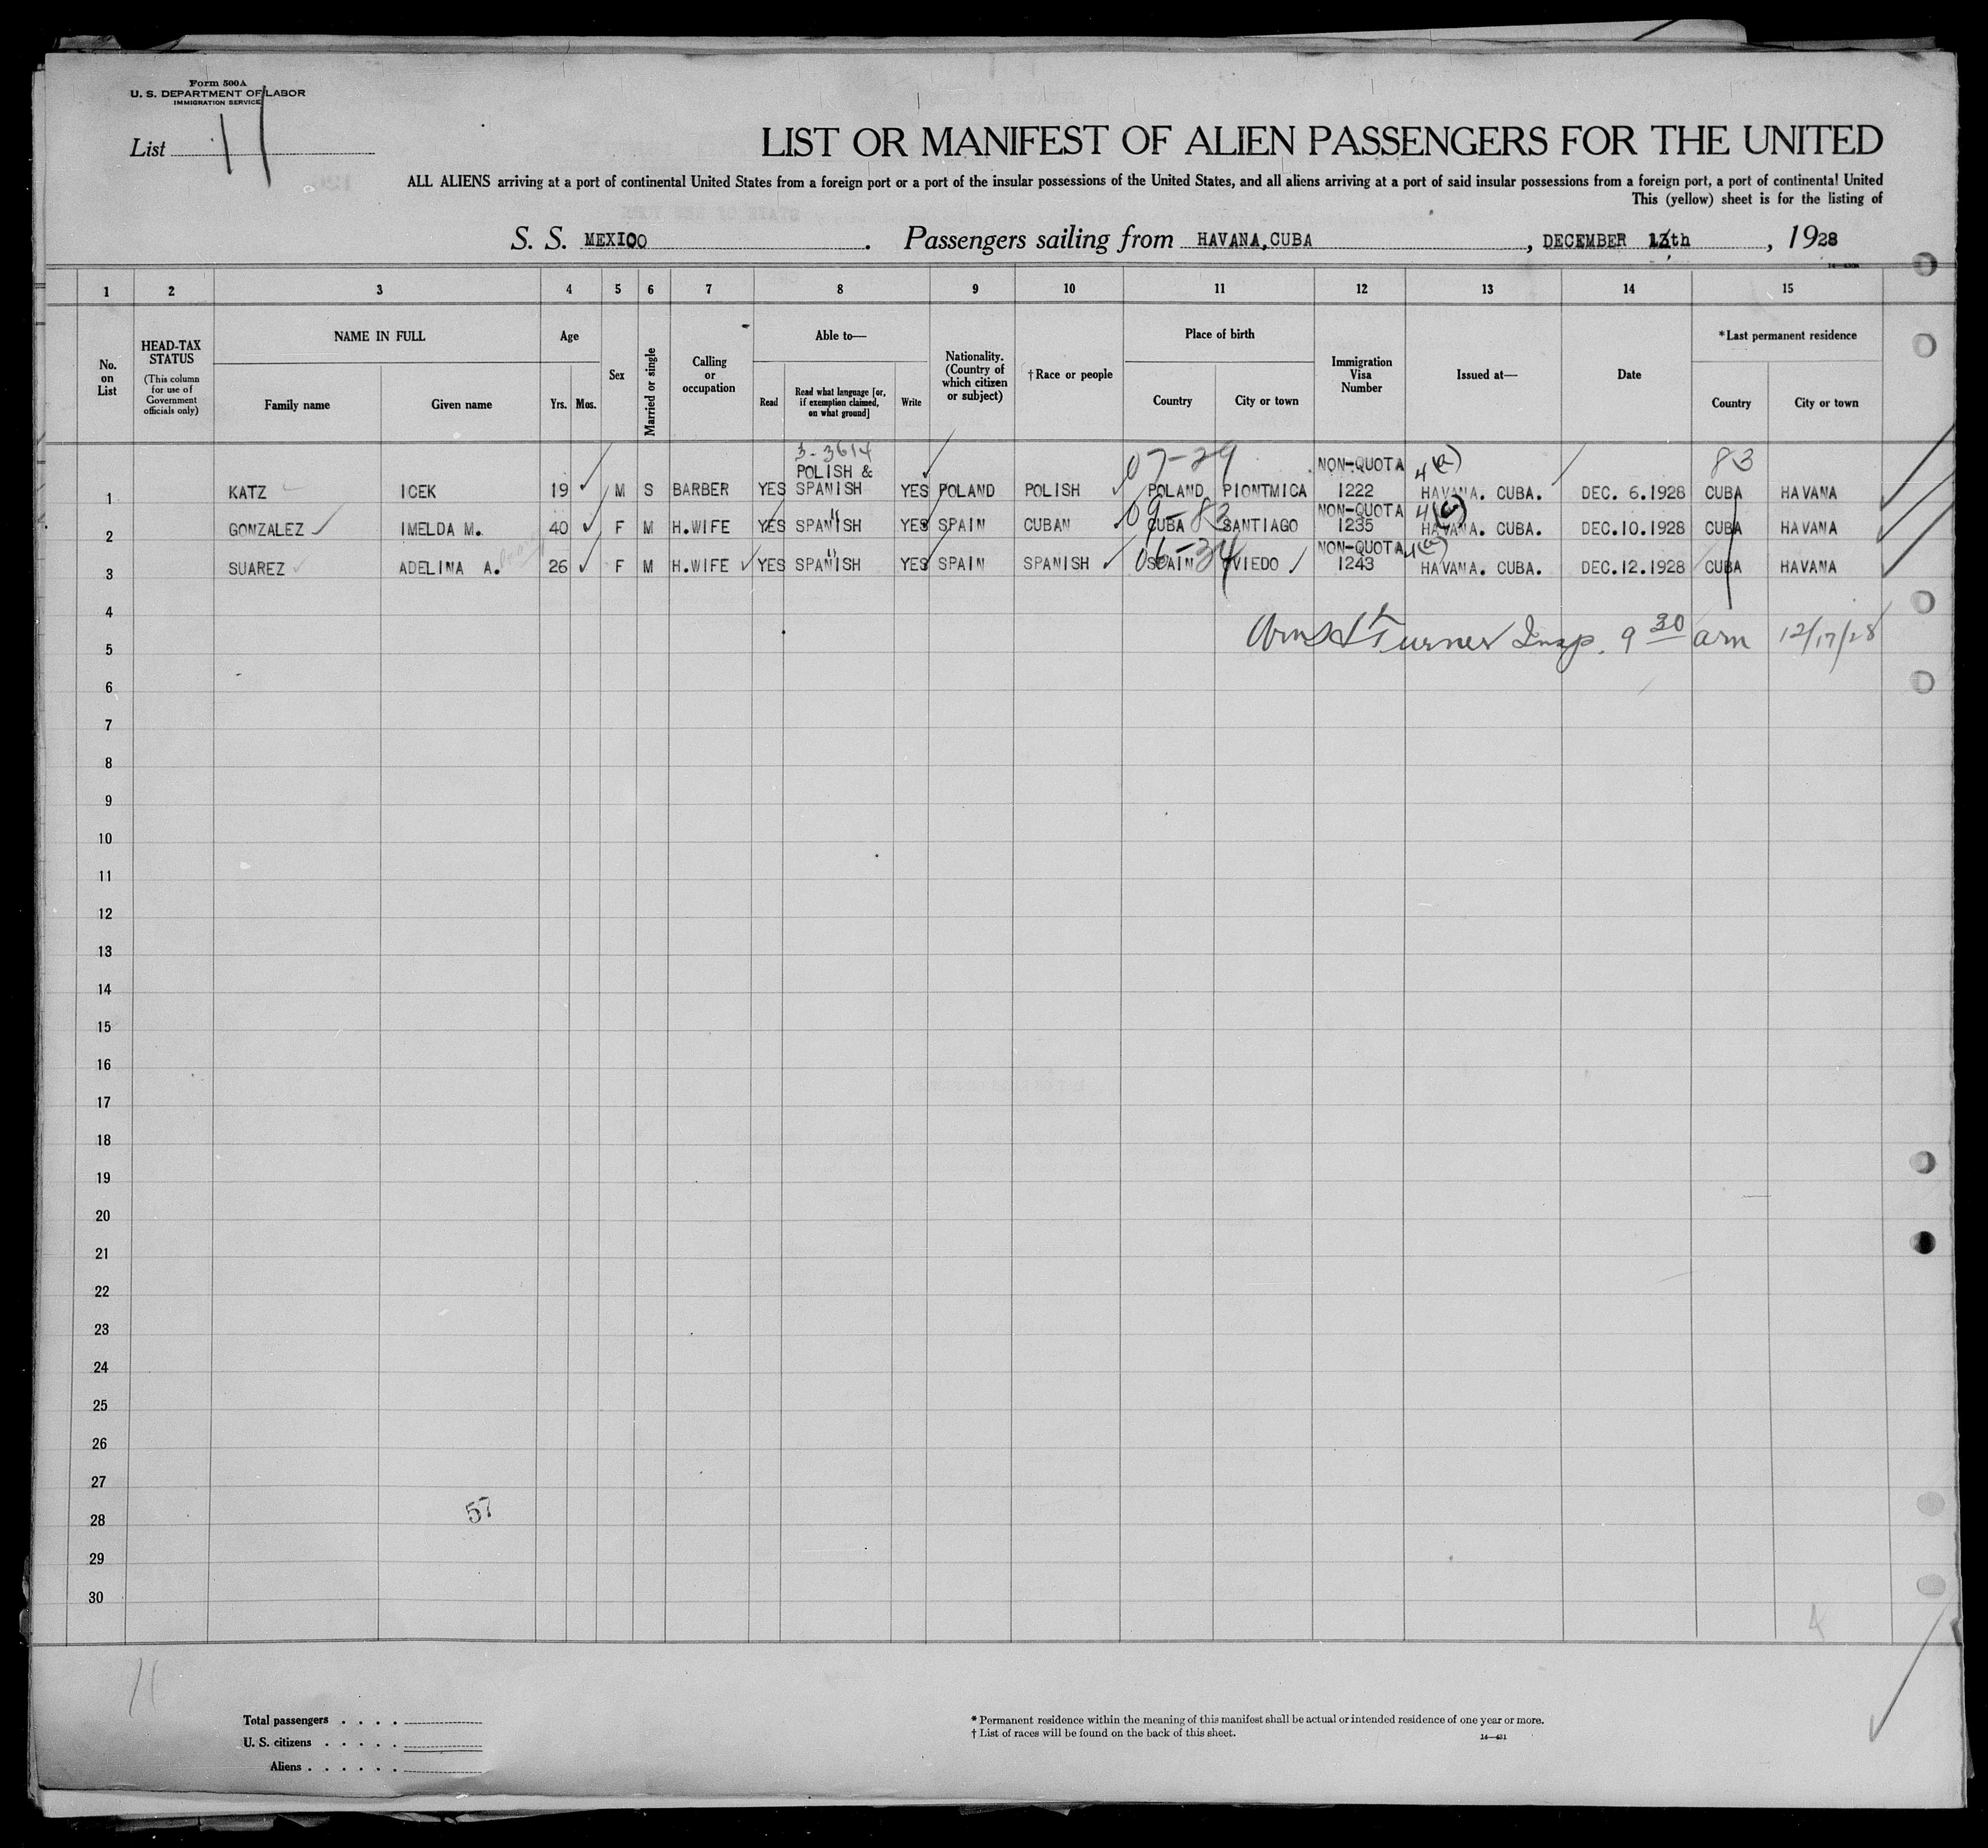 Form 500A
U. S. DEPARTMENT OF LABOR
IMMIGRATION SERVICE
List 11
LIST OR MANIFEST OF ALIEN PASSENGERS FOR THE UNITED
ALL ALIENS arriving at a port of continental United States from a foreign port or a port of the insular possessions of the United States, and all aliens arriving at a port of said insular possessions from a foreign port, a port of continental United
This (yellow) sheet is for the listing of
S. S. MEXICO . Passengers sailing from HAVANA, CUBA , DECEMBER 13th , 1928
1 2 3 4 5 6 7 8 9 10 11 12 13 14 15
No. on List
HEAD-TAX STATUS (This column for use of Government officials only)
NAME IN FULL
Family name Given name
Age
Yrs. Mos.
Sex
Married or single
Calling or occupation
Able to—
Read
Read what language [or, if exemption claimed, on what ground]
Write
Nationality. (Country of which citizen or subject)
†Race or people
Place of birth
Country City or town
Immigration Visa Number
Issued at—
Date
*Last permanent residence
Country City or town
3-3614 07-29 NON-QUOTA 4(c) 83
POLISH &
1 KATZ ICEK 19 M S BARBER YES SPANISH YES POLAND POLISH POLAND PIONTMICA 1222 HAVANA. CUBA. DEC. 6.1928 CUBA HAVANA
09-83 NON-QUOTA 4(c)
2 GONZALEZ IMELDA M. 40 F M H.WIFE YES SPANISH YES SPAIN CUBAN CUBA SANTIAGO 1235 HAVANA. CUBA. DEC.10.1928 CUBA HAVANA
06-34 NON-QUOTA
3 SUAREZ ADELINA A. 26 F M H.WIFE YES SPANISH YES SPAIN SPANISH SPAIN OVIEDO 1243 HAVANA. CUBA. DEC.12.1928 CUBA HAVANA
4
Turner Insp. 9 30 am 12/17/28
5
6
7
8
9
10
11
12
13
14
15
16
17
18
19
20
21
22
23
24
25
26
27
57
28
29
30
4
11
Total passengers
U. S. citizens
Aliens
* Permanent residence within the meaning of this manifest shall be actual or intended residence of one year or more.
† List of races will be found on the back of this sheet.
14—431